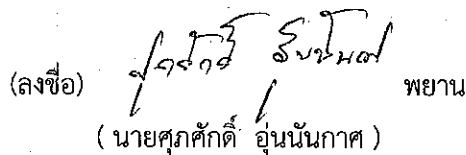 (ลงชื่อ) พยาน
( นายศุภศักดิ์ อุ่นนันกาศ )